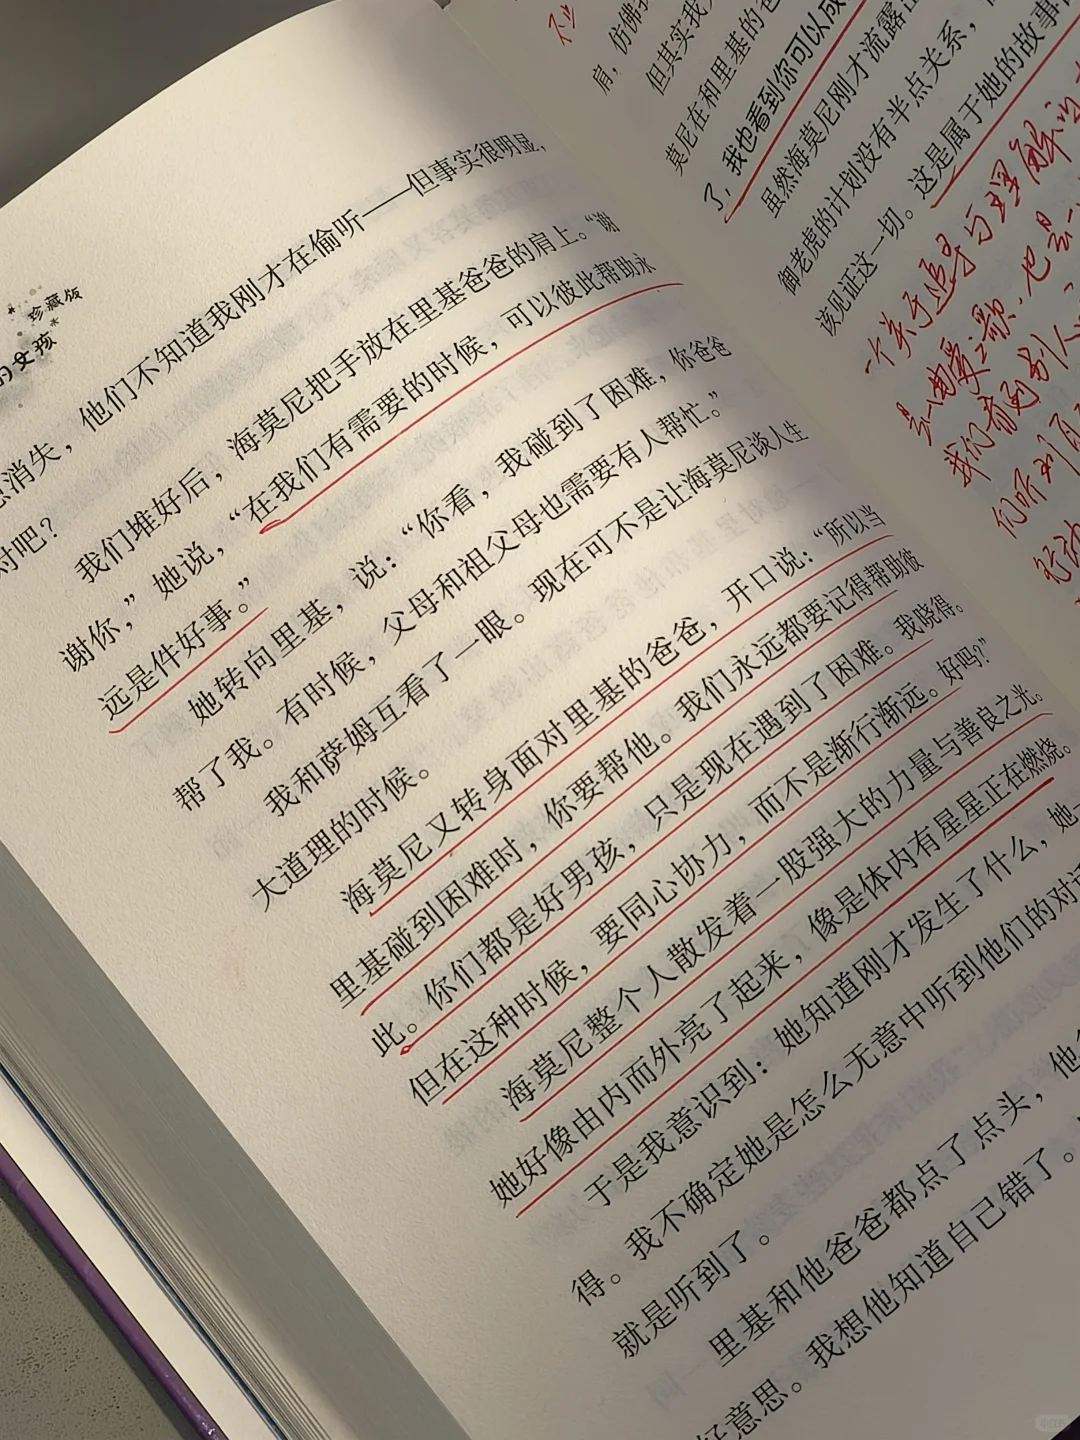 珍藏版
的女孩
消失，他们不知道我刚才在偷听——但事实很明显，
对吧？
我们堆好后，海莫尼把手放在里基爸爸的肩上。“谢
谢你，”她说，“在我们有需要的时候，可以彼此帮助永
远是件好事。”
她转向里基，说：“你看，我碰到了困难，你爸爸
帮了我。有时候，父母和祖父母也需要有人帮忙。”
我和萨姆互看了一眼。现在可不是让海莫尼谈人生
大道理的时候。
海莫尼又转身面对里基的爸爸，开口说：“所以当
里基碰到困难时，你要帮他。我们永远都要记得帮助彼
此。你们都是好男孩，只是现在遇到了困难。我晓得。
但在这种时候，要同心协力，而不是渐行渐远。好吗？”
海莫尼整个人散发着一股强大的力量与善良之光。
她好像由内而外亮了起来，像是体内有星星正在燃烧。
于是我意识到：她知道刚才发生了什么，她
得。我不确定她是怎么无意中听到他们的对
就是听到了。
里基和他爸爸都点了点头，他
好意思。我想他知道自己错了。
肩，仿佛
但其实我
莫尼在和里基的爸
了，我也看到你可以成
虽然海莫尼刚才流露
御老虎的计划没有半点关系，
该见证这一切。这是属于她的故事
一个关于追寻与理解的
是一曲爱之歌，也是一
我们看两别人
们听到
行动